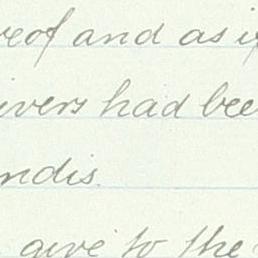 reof and as if
ivers had bee
ndis.
give to the